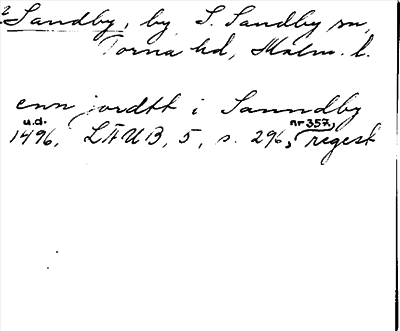 2 Sandby, by, S. Sandby sn,
Torna hd, Malm. l.
enn jordtt i Sanndby
u.d. nr 357,
1496, LÄUB, 5, s. 296, regest